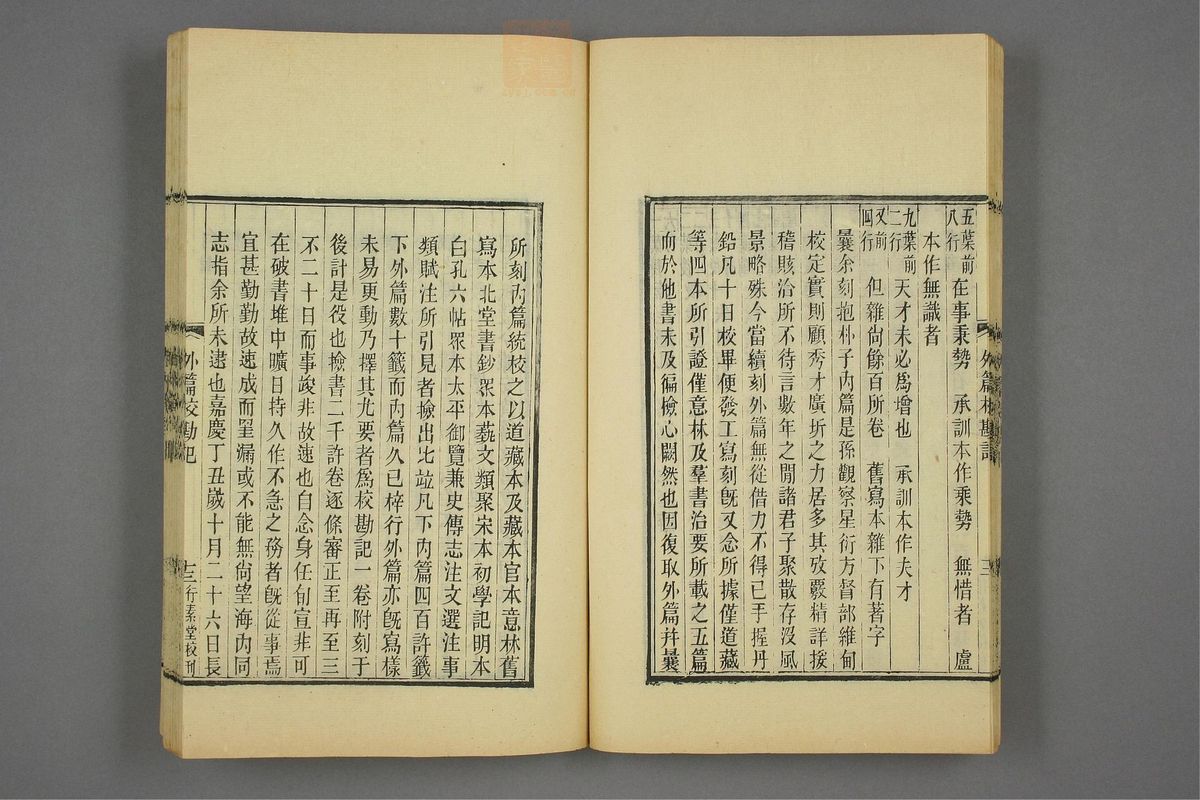 外篇校勘記
三
五葉前八行 在事秉勢 承訓本作乘勢 無惜者 盧
本作無識者
九葉前二行 天才未必爲增也 承訓本作夫才
又前四行 但雜尙餘百所卷 舊寫本雜下有著字
曩余刻抱朴子內篇是孫觀察星衍方督部維甸
校定實則顧秀才廣圻之力居多其攷覈精詳援
稽賅洽所不待言數年之閒諸君子聚散存沒風
景略殊今當續刻外篇無從借力不得已手握丹
鉛凡十日校畢便發工寫刻旣又念所據僅道藏
等四本所引證僅意林及羣書治要所載之五篇
而於他書未及徧檢心闕然也因復取外篇幷曩
所刻內篇統校之以道藏本及藏本官本意林舊
寫本北堂書鈔眾本藝文類聚宋本初學記明本
白孔六帖眾本太平御覽兼史傳志注文選注事
類賦注所引見者撿出比竝凡下內篇四百許籤
下外篇數十籤而內篇久已梓行外篇亦旣寫樣
未易更動乃擇其尤要者爲校勘記一卷附刻于
後計是役也撿書二千許卷逐條審正至再至三
不二十日而事竣非故速也自念身任旬宣非可
在破書堆中曠日持久作不急之務者旣從事焉
宜甚勤勤故速成而罣漏或不能無尙望海內同
志指余所未逮也嘉慶丁丑歲十月二十六日長
外篇校勘記
十三
行素堂校刊